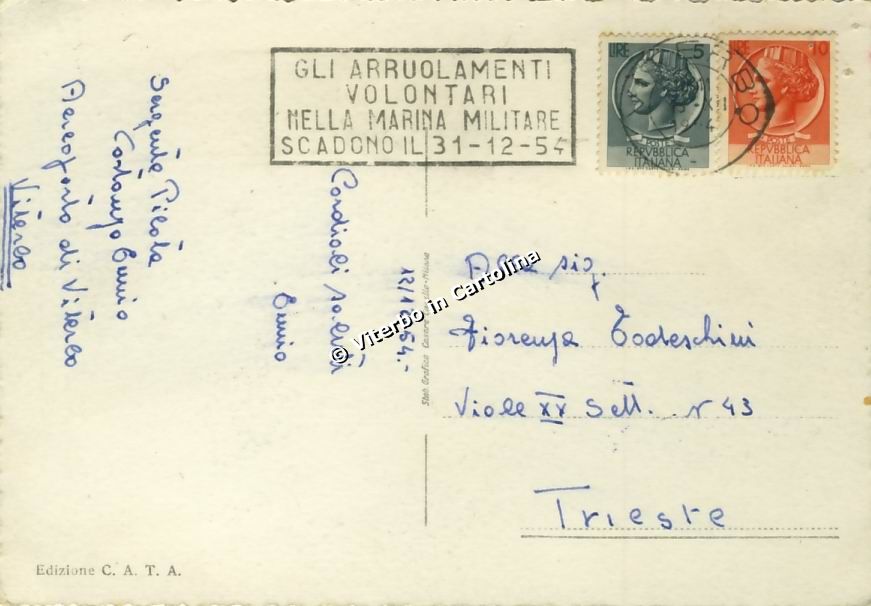 GLI ARRUOLAMENTI
VOLONTARI
NELLA MARINA MILITARE
SCADONO IL 31-12-54
LIRE 5
POSTE
REPVBBLICA
ITALIANA
LIRE 10
POSTE
REPVBBLICA
ITALIANA
Sergente Pilota
Ennio
Aeroporto di Viterbo
Viterbo
Cordiali saluti
Ennio
Alla sig.
Fiorenza Todeschini
Viale XX Sett. N 43
Trieste
Stab. Grafico Cesare Milano
© Viterbo in Cartolina
Edizione C. A. T. A.